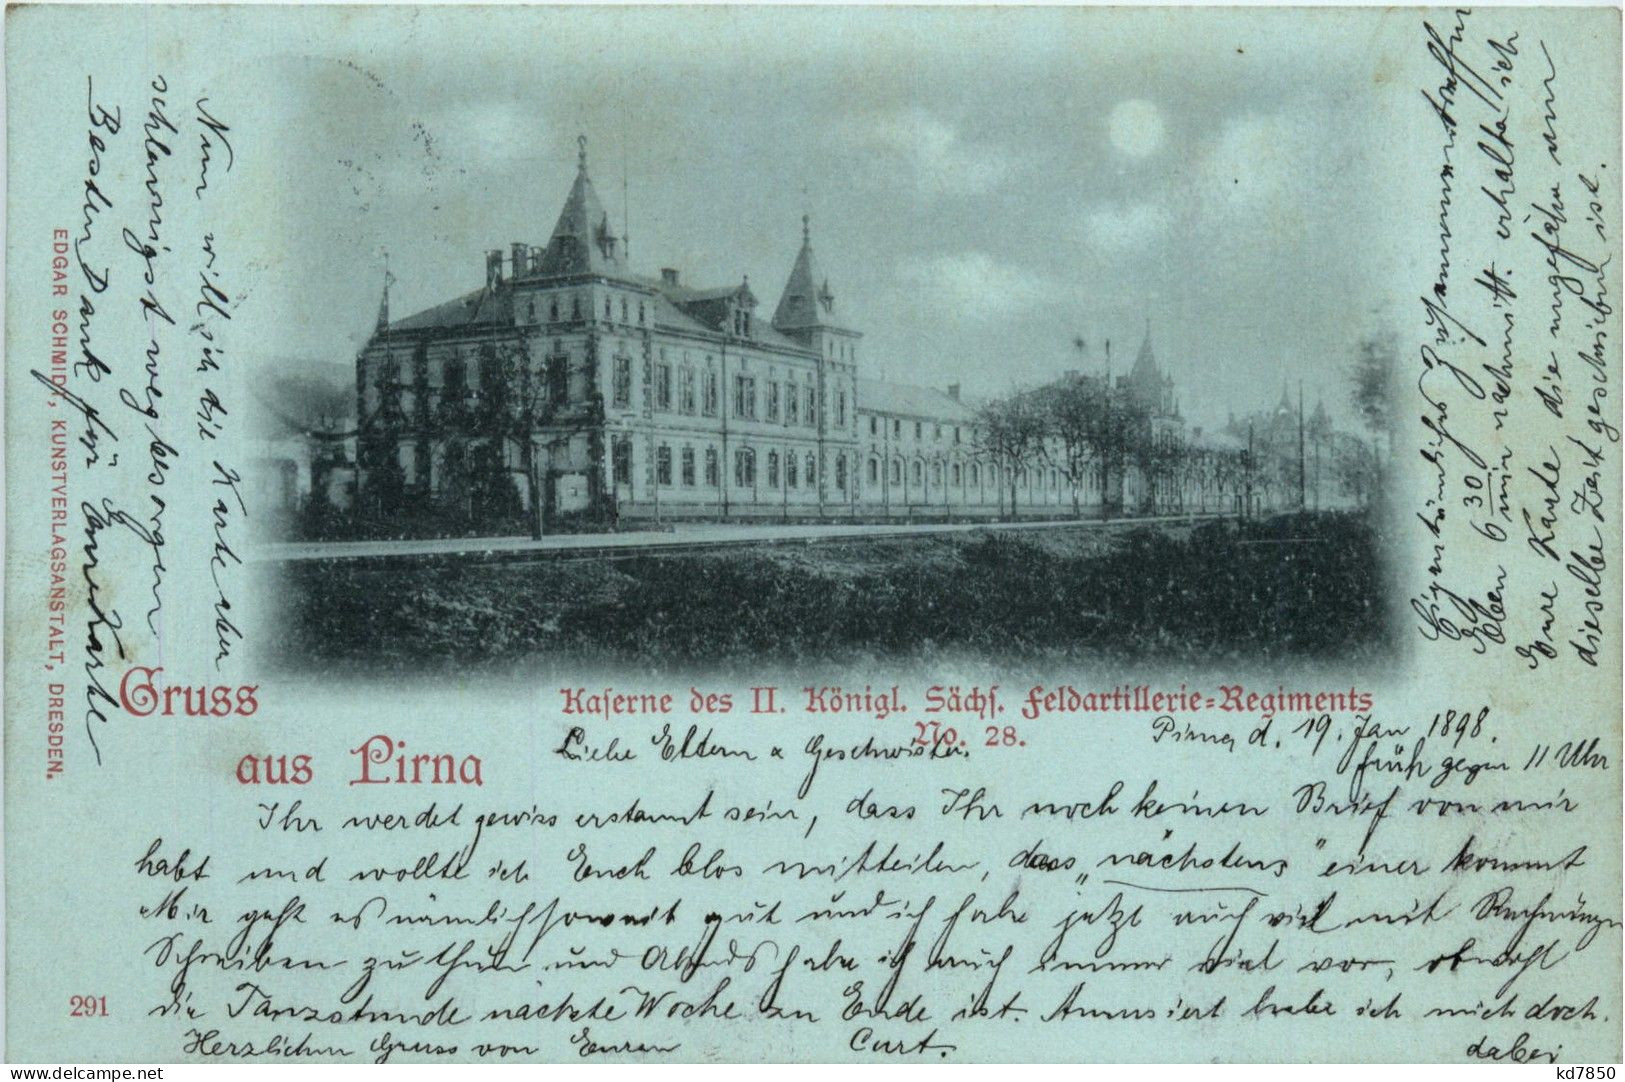 Gruss
aus Pirna
Kaserne des II. Königl. Sächs. Feldartillerie=Regiments
No. 28.
EDGAR SCHMIDT, KUNSTVERLAGSANSTALT, DRESDEN.
291
Pirna, d. 19. Jan 1898.
früh gegen 11 Uhr
Liebe Eltern & Geschwister.
Ihr werdet gewiss erstaunt sein, dass Ihr noch keinen Brief von mir
habt und wollte ich Euch blos mitteilen, dass „nächstens“ einer kommt
Mir geht es nämlich soweit gut und ich habe jetzt auch viel mit
Schreiben zu thun und Abends habe ich auch immer viel vor, obwohl
die Tanzstunde nächste Woche zu Ende ist. Amusiert habe ich mich doch.
dabei
Herzlichen Gruss von Euren Curt.
Nun will ich die Karte aber
schleunigst wegbesorgen
Besten Dank für Eure Karte
Eigentümliches Zusammentreffen
Eben 6 30 min nachmitt. erhalte ich
Eure Karte die ungefähr um
dieselbe Zeit geschrieben ist.
delcampe.net
kd7850